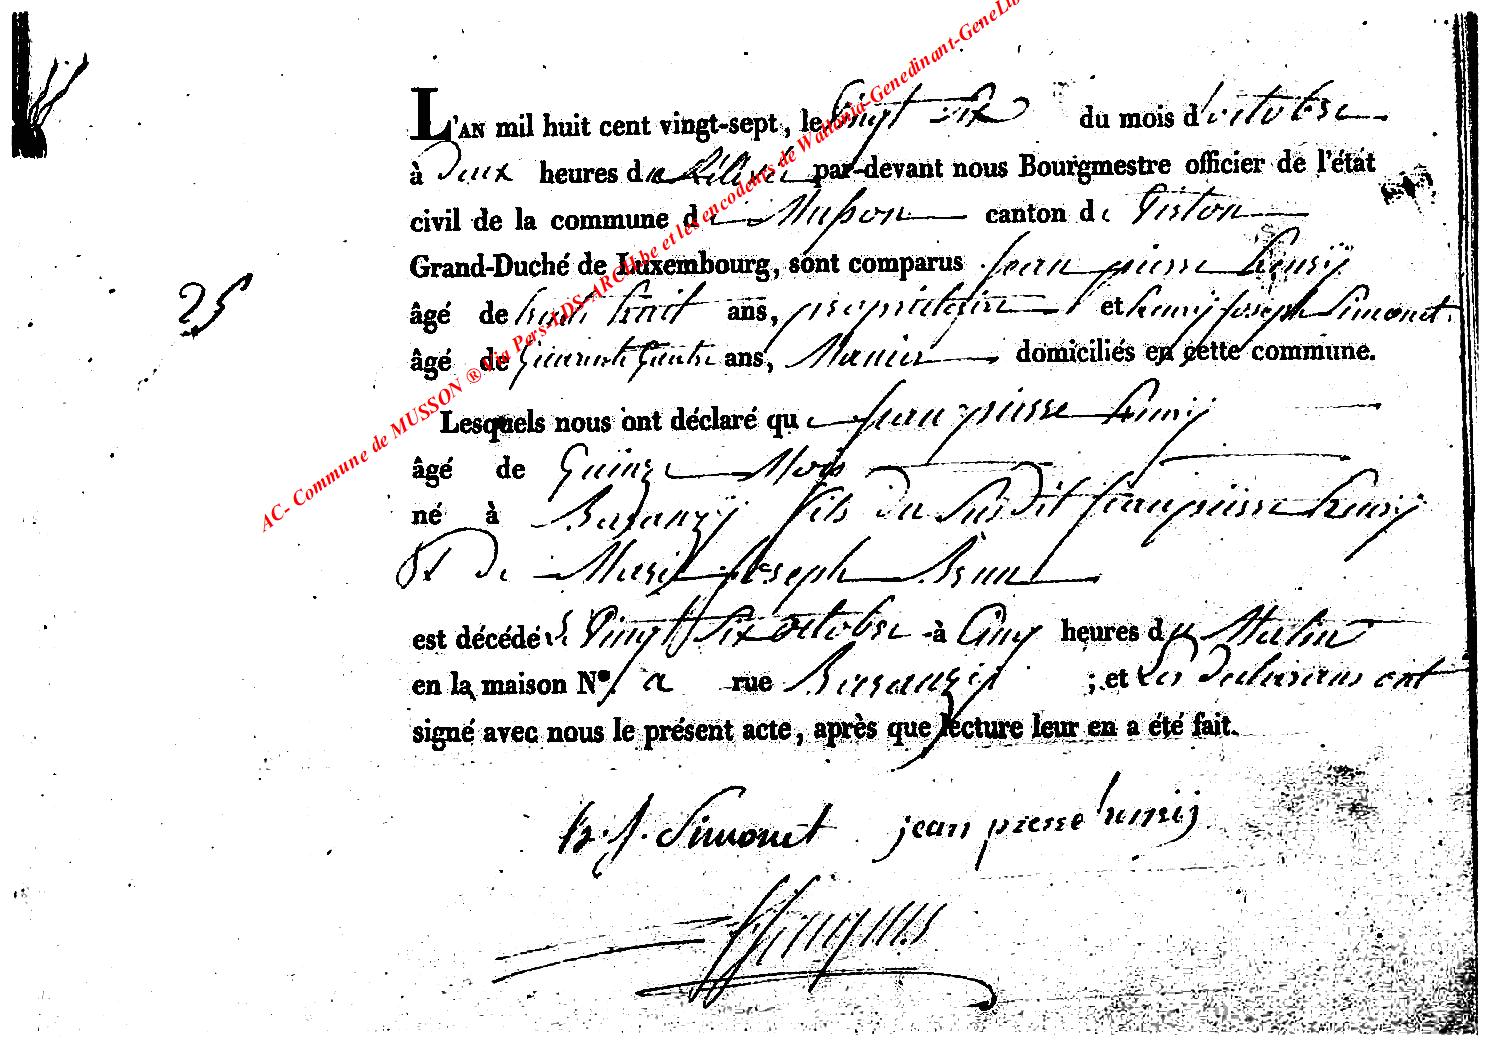 L'AN mil huit cent vingt-sept, le Vingt Six du mois d'octobre
à Deux heures de Rélevée par-devant nous Bourgmestre officier de l'état
civil de la commune de Musson canton de Virton
Grand-Duché de Luxembourg, sont comparus Jean pierre henrÿ
25
âgé de trente huit ans, propriétaire et henrÿ Joseph Simonet
âgé de Quarante Quatre ans, domiciliés en cette commune.
Lesquels nous ont déclaré que Jean pierre henrÿ
âgé de Quinze Mois
né à Baranzÿ fils du Susdit Jean pierre henrÿ
Et de Marie Joseph Brun
est décédé le Vingt Six octobre à Cinq heures du Matin
en la maison N° a rue Baranzÿ ; et Les Déclarans ont
signé avec nous le présent acte, après que lecture leur en a été fait.
h. J. Simonet jean pierre henrij
AC- Commune de MUSSON ® Via Pers-LDS-ARCH.be et les encodeurs de Wallonia-Genedinant-GeneLib